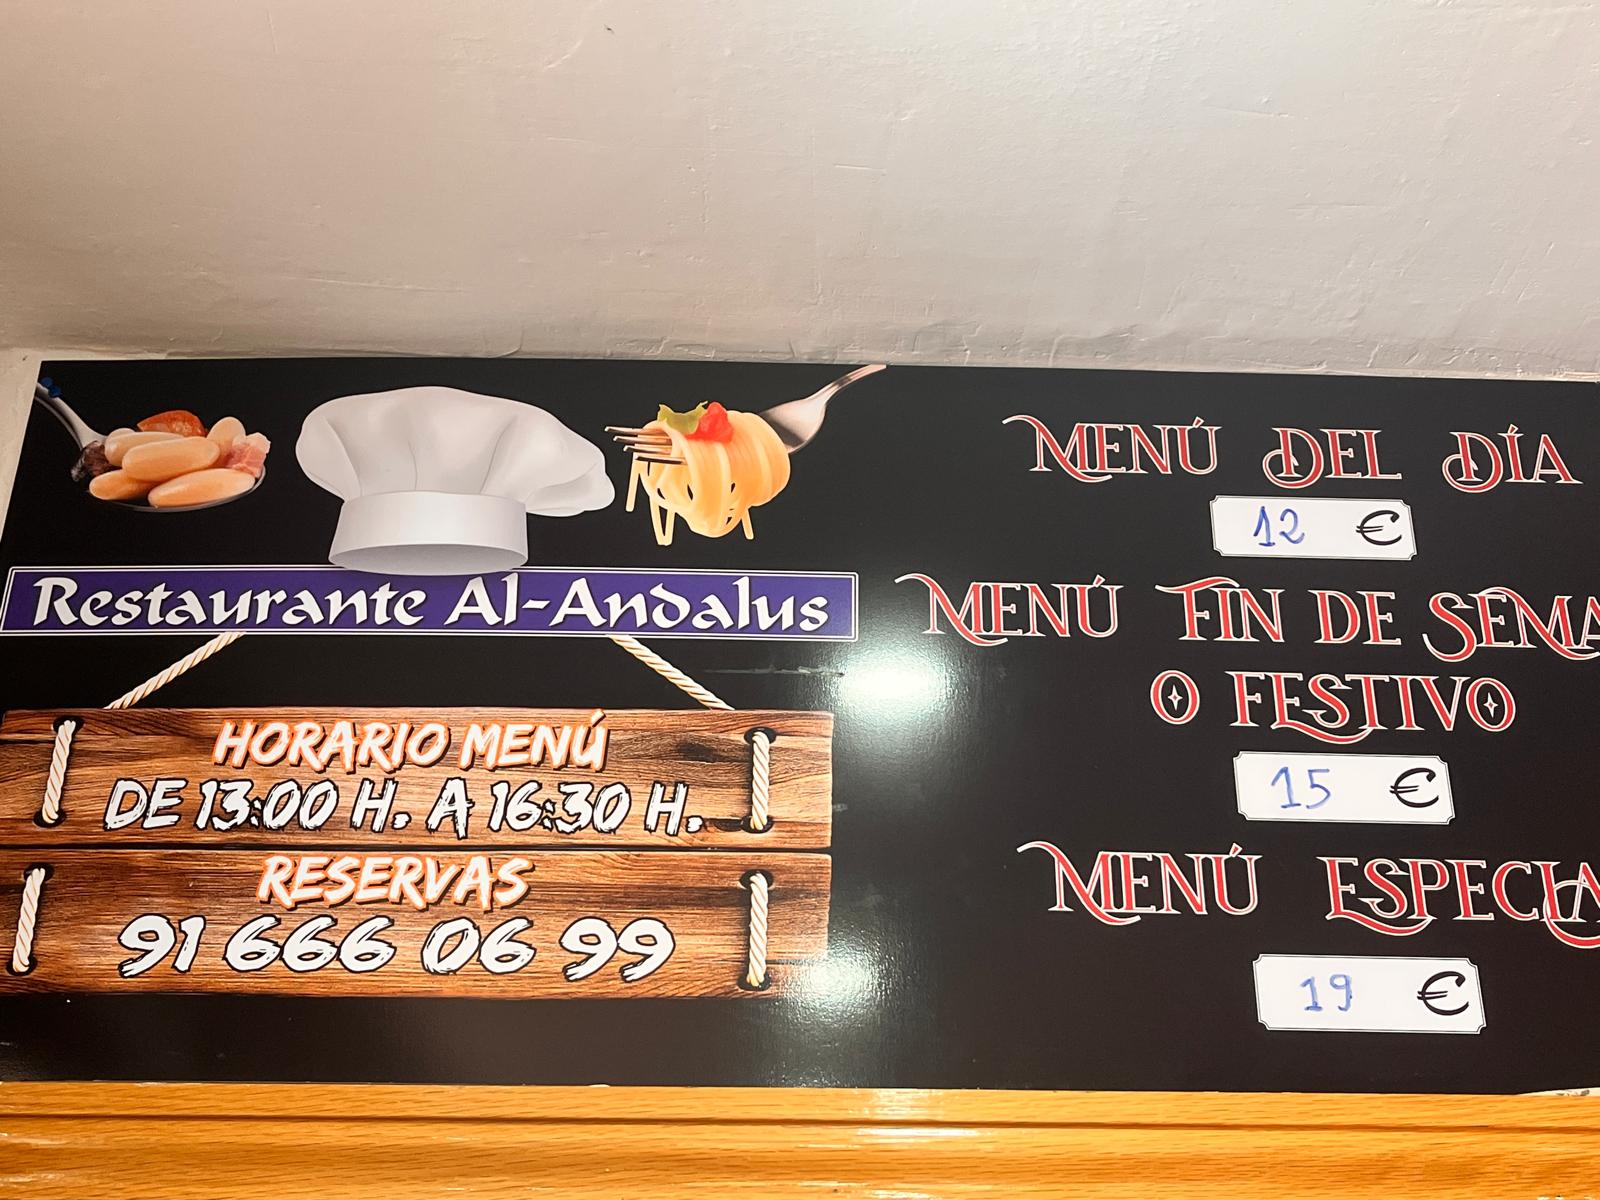 Restaurante Al-Andalus
HORARIO MENÚ
DE 13:00 H. A 16:30 H.
RESERVAS
91 666 06 99
MENÚ DEL DÍA
12 €
MENÚ FIN DE SEMA
O FESTIVO
15 €
MENÚ ESPECIA
19 €